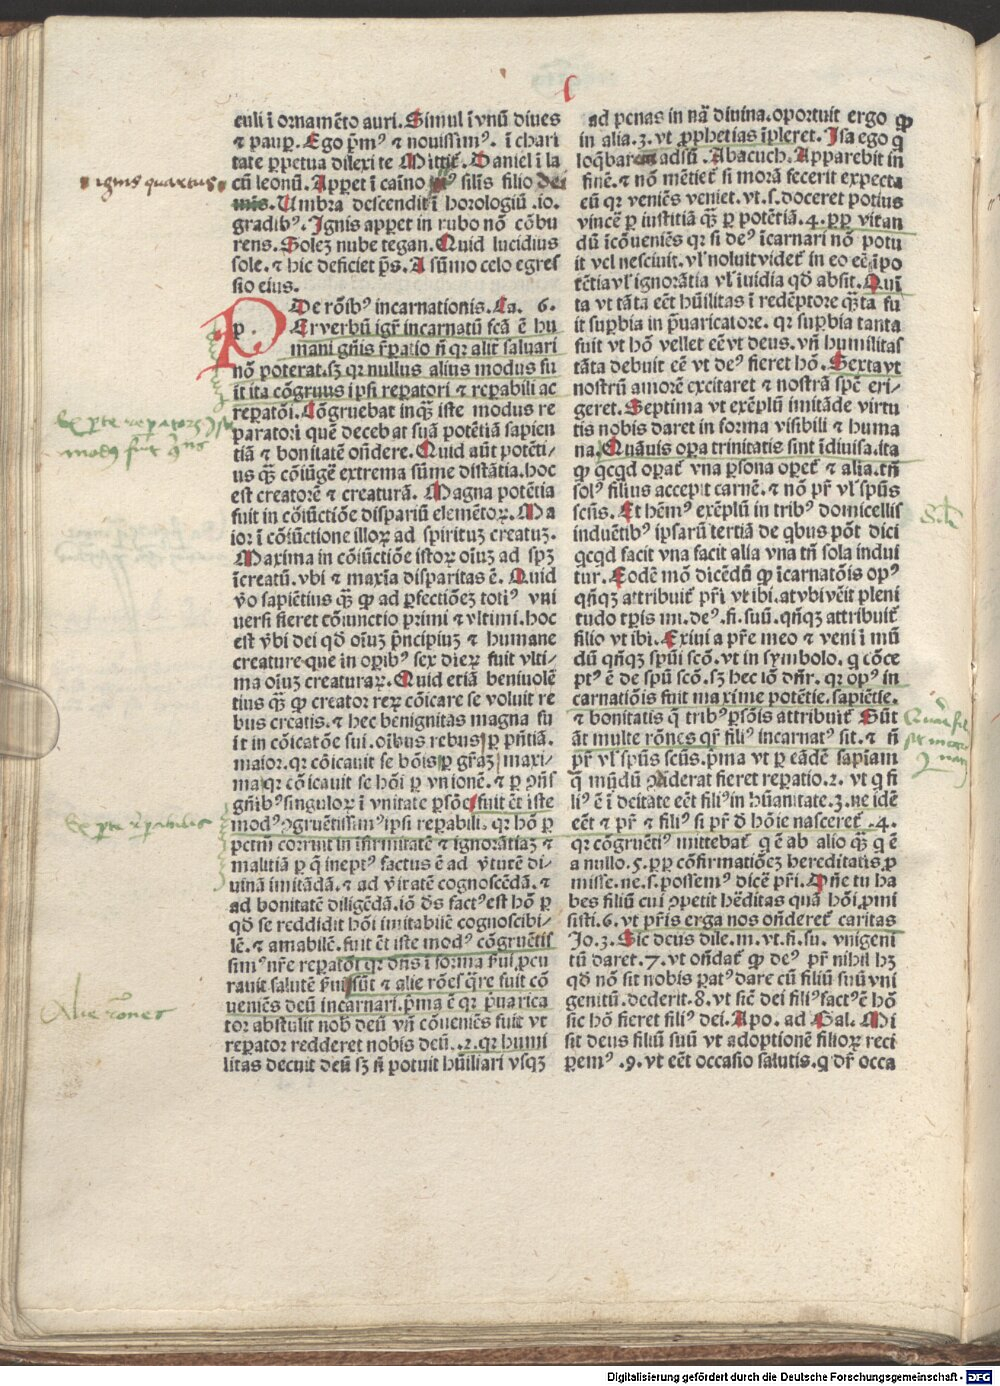 culi ī ornamēto auri. Simul ī vnū diues
⁊ paup̲. Ego p̄mꝰ ⁊ nouissimꝰ. ī chari
tate p̲petua dilexi te Mittit̄. Daniel ī la
cū leonū. Appet ī caīno silis filio dei
Umbra descendit ī horologiū .io.
gradibꝰ. Ignis appet in rubo nō cōbu
rens. Solez nube tegan. Quid lucidius
sole. ⁊ hic deficiet p̄s. A sūmo celo egres
sio eius.
De rōibꝰ incarnationis. Ca. 6.
P Er verbū igr̄ incarnatū scā ē hu
mani gn̄is r̄patio n̄ qr alit̄ saluari
nō poterat. sꝫ qr nullus alius modus fu
it ita cōgruus ip̄i rep̲atori ⁊ rep̲abili ac
rep̲atōi. Cōgruebat inq̄ꝫ iste modus re
paratori quē decebat suā potētiā sapien
tiā ⁊ bonitatē on̄dere. Quid aūt potēti/
us q̄ꝫ cōiūgē extrema sūme distātia. hoc
est creatorē ⁊ creaturā. Magna potētia
fuit in cōiūctiōe dispariū elemētoꝝ. Ma
ior ī cōiūctione illoꝝ ad spirituꝫ creatuꝫ.
Maxima in cōiūctiōe istoꝝ oīuꝫ ad spꝫ
īcreatū. vbi ⁊ maxīa disparitas ē. Quid
v̄o sapiētius q̄ꝫ ꝙ ad p̲fectiōeꝫ totiꝰ vni
uersi fieret cōiunctio primi ⁊ vltimi. hoc
est v̄bi dei qd̄ oīuꝫ p̄ncipiuꝫ ⁊ humane
creature que in op̲ibꝰ sex dieꝝ fuit vlti/
ma oīuꝫ creaturaꝝ. Quid etiā beniuolē
tius q̄ꝫ ꝙ creator reꝝ cōicare se voluit re
bus creatis. ⁊ hec benignitas magna fu
it in cōicatōe sui. oībus rebus p̲ p̄ntiā.
maior. qr cōicauit se bōis p̲ gr̄aꝫ maxi/
ma qr cōicauit se hōi p̲ vnionē. ⁊ p̲ ↄn̄s
gn̄ibꝰ singuloꝝ ī vnitate p̲sōe fuit ēt iste
modꝰ ↄgruētissimꝰ ip̄i rep̲abili. qr hō p̲
pctm̄ corruit in īfirmitatē ⁊ ignorātiaꝫ ⁊
malitiā p̲ q̄ ineptꝰ factus ē ad v̄tutē di/
uinā imitādā. ⁊ ad v̄itatē cognoscēdā. ⁊
ad bonitatē diligēdā. iō d̄s factꝰ est hō p̲
qd̄ se reddidit hōi imitabilē cognoscibi/
lē. ⁊ amabilē. fuit ēt iste modꝰ cōgruētis
simꝰ nr̄e rep̲atōi qr dn̄s ī forma s̄ui p̲cu
rauit salutē s̄ui sūt ⁊ alie rōes q̄re fuit cō
ueniēs deū incarnari. p̄ma ē qr p̄uarica
tor abstulit nob̄ deū vn̄ cōueniēs fuit vt
rep̲ator redderet nobis deū. .2. qr humi
litas decuit deū sꝫ n̄ potuit hūiliari vsqꝫ
ad penas in nā diuina. oportuit ergo ꝙ
in alia. 3. vt p̲phetias īpleret. Isa ego q̄
loq̄bar adsū. Abacuch. Apparebit in
finē. ⁊ nō mētiet̄ si morā fecerit expecta
eū qr veniēs veniet. vt. s. doceret potius
vincē p̲ iustitiā q̄ꝫ p̲ potētiā. 4. p̲p̲ vitan
dū īcōueniēs qr si deꝰ īcarnari nō potu
it vel nesciuit. vl̄ noluit videt̄ in eo eē īpo
tētia vl̄ ignorātia vl̄ īuidia qd̄ absit. Quī
ta vt tāta eēt hūilitas ī redēptore q̄ꝫta fu
it sup̲bia in p̄uaricatore. qr sup̲bia tanta
fuit vt hō vellet eē vt deus. vn̄ humilitas
tāta debuit eē vt deꝰ fieret hō. Sexta vt
nostrū amorē excitaret ⁊ nostrā spē eri/
geret. Septima vt exēplū imitāde virtu
tis nobis daret in forma visibili ⁊ huma
na. Quāuis opa trinitatis sint īdiuisa. ita
ꝙ qcqd opat̄ vna p̲sona opet̄ ⁊ alia. tn̄
solꝰ filius accepit carnē. ⁊ nō pr̄ vl̄ sp̄us
scūs. Et hēmꝰ exēplū in tribꝰ domicellis
induētibꝰ ipsarū tertiā de qbus pōt dici
qcqd facit vna facit alia vna tn̄ sola indui
tur. Eodē mō dicēdū ꝙ īcarnatōis opꝰ
qn̄qꝫ attribuit̄ pr̄i vt ibi. at vbi vēit pleni
tudo tp̲is mi. deꝰ. fi. suū. qn̄qꝫ attribuit̄
filio vt ibi. Exiui a pr̄e meo ⁊ veni ī mū
dū qn̄qꝫ sp̄ui scō. vt in symbolo. q cōce
ptꝰ ē de spū scō. sꝫ hec iō dn̄r. qr opꝰ in
carnatiōis fuit maxime potētie. sapiētie.
⁊ bonitatis q̄ tribꝰ p̲sōis attribuit̄ Sūt
āt multe rōnes qr̄ filiꝰ incarnatꝰ sit. ⁊ n̄
pr̄ vl̄ sp̄us scūs. p̄ma vt p̲ eādē sapiam
q̄ mūdū ↄdiderat fieret rep̲atio. 2. vt q fi
liꝰ ē ī deitate eēt filiꝰ in hūanitate. 3. ne idē
eēt ⁊ pr̄ ⁊ filiꝰ si pr̄ d̄ hōie nasceret̄. .4.
qr cōgruētiꝰ mittebat̄ q ē ab alio q̄ꝫ q ē
a nullo. 5. p̲p̲ cōfirmatiōeꝫ hereditatis p̲
misse. ne. s. possemꝰ dicē pr̄i. Dn̄e tu ha
bes filiū cui ↄpetit hēditas quā hōi p̲mi
sisti. 6. vt pr̄is erga nos on̄deret̄ caritas
Jo. 3. Sic deus dile. m. vt. fi. su. vnigeni
tū daret. 7. vt on̄dat̄ ꝙ deꝰ pr̄ nihil hꝫ
qd̄ nō sit nobis patꝰ dare cū filiū suū vni
genitū. dederit. 8. vt sic̄ dei filiꝰ factꝰ ē hō
sic hō fieret filiꝰ dei. Apo. ad Gal. Mi
sit deus filiū suū vt adoptionē filioꝝ reci
p̲emꝰ .9. vt eēt occasio salutis. q dr̄ occa
ignis quartus
Ex p̲te rep̲abilis
Alie rōnes
Digitalisierung gefördert durch die Deutsche Forschungsgemeinschaft - DFG